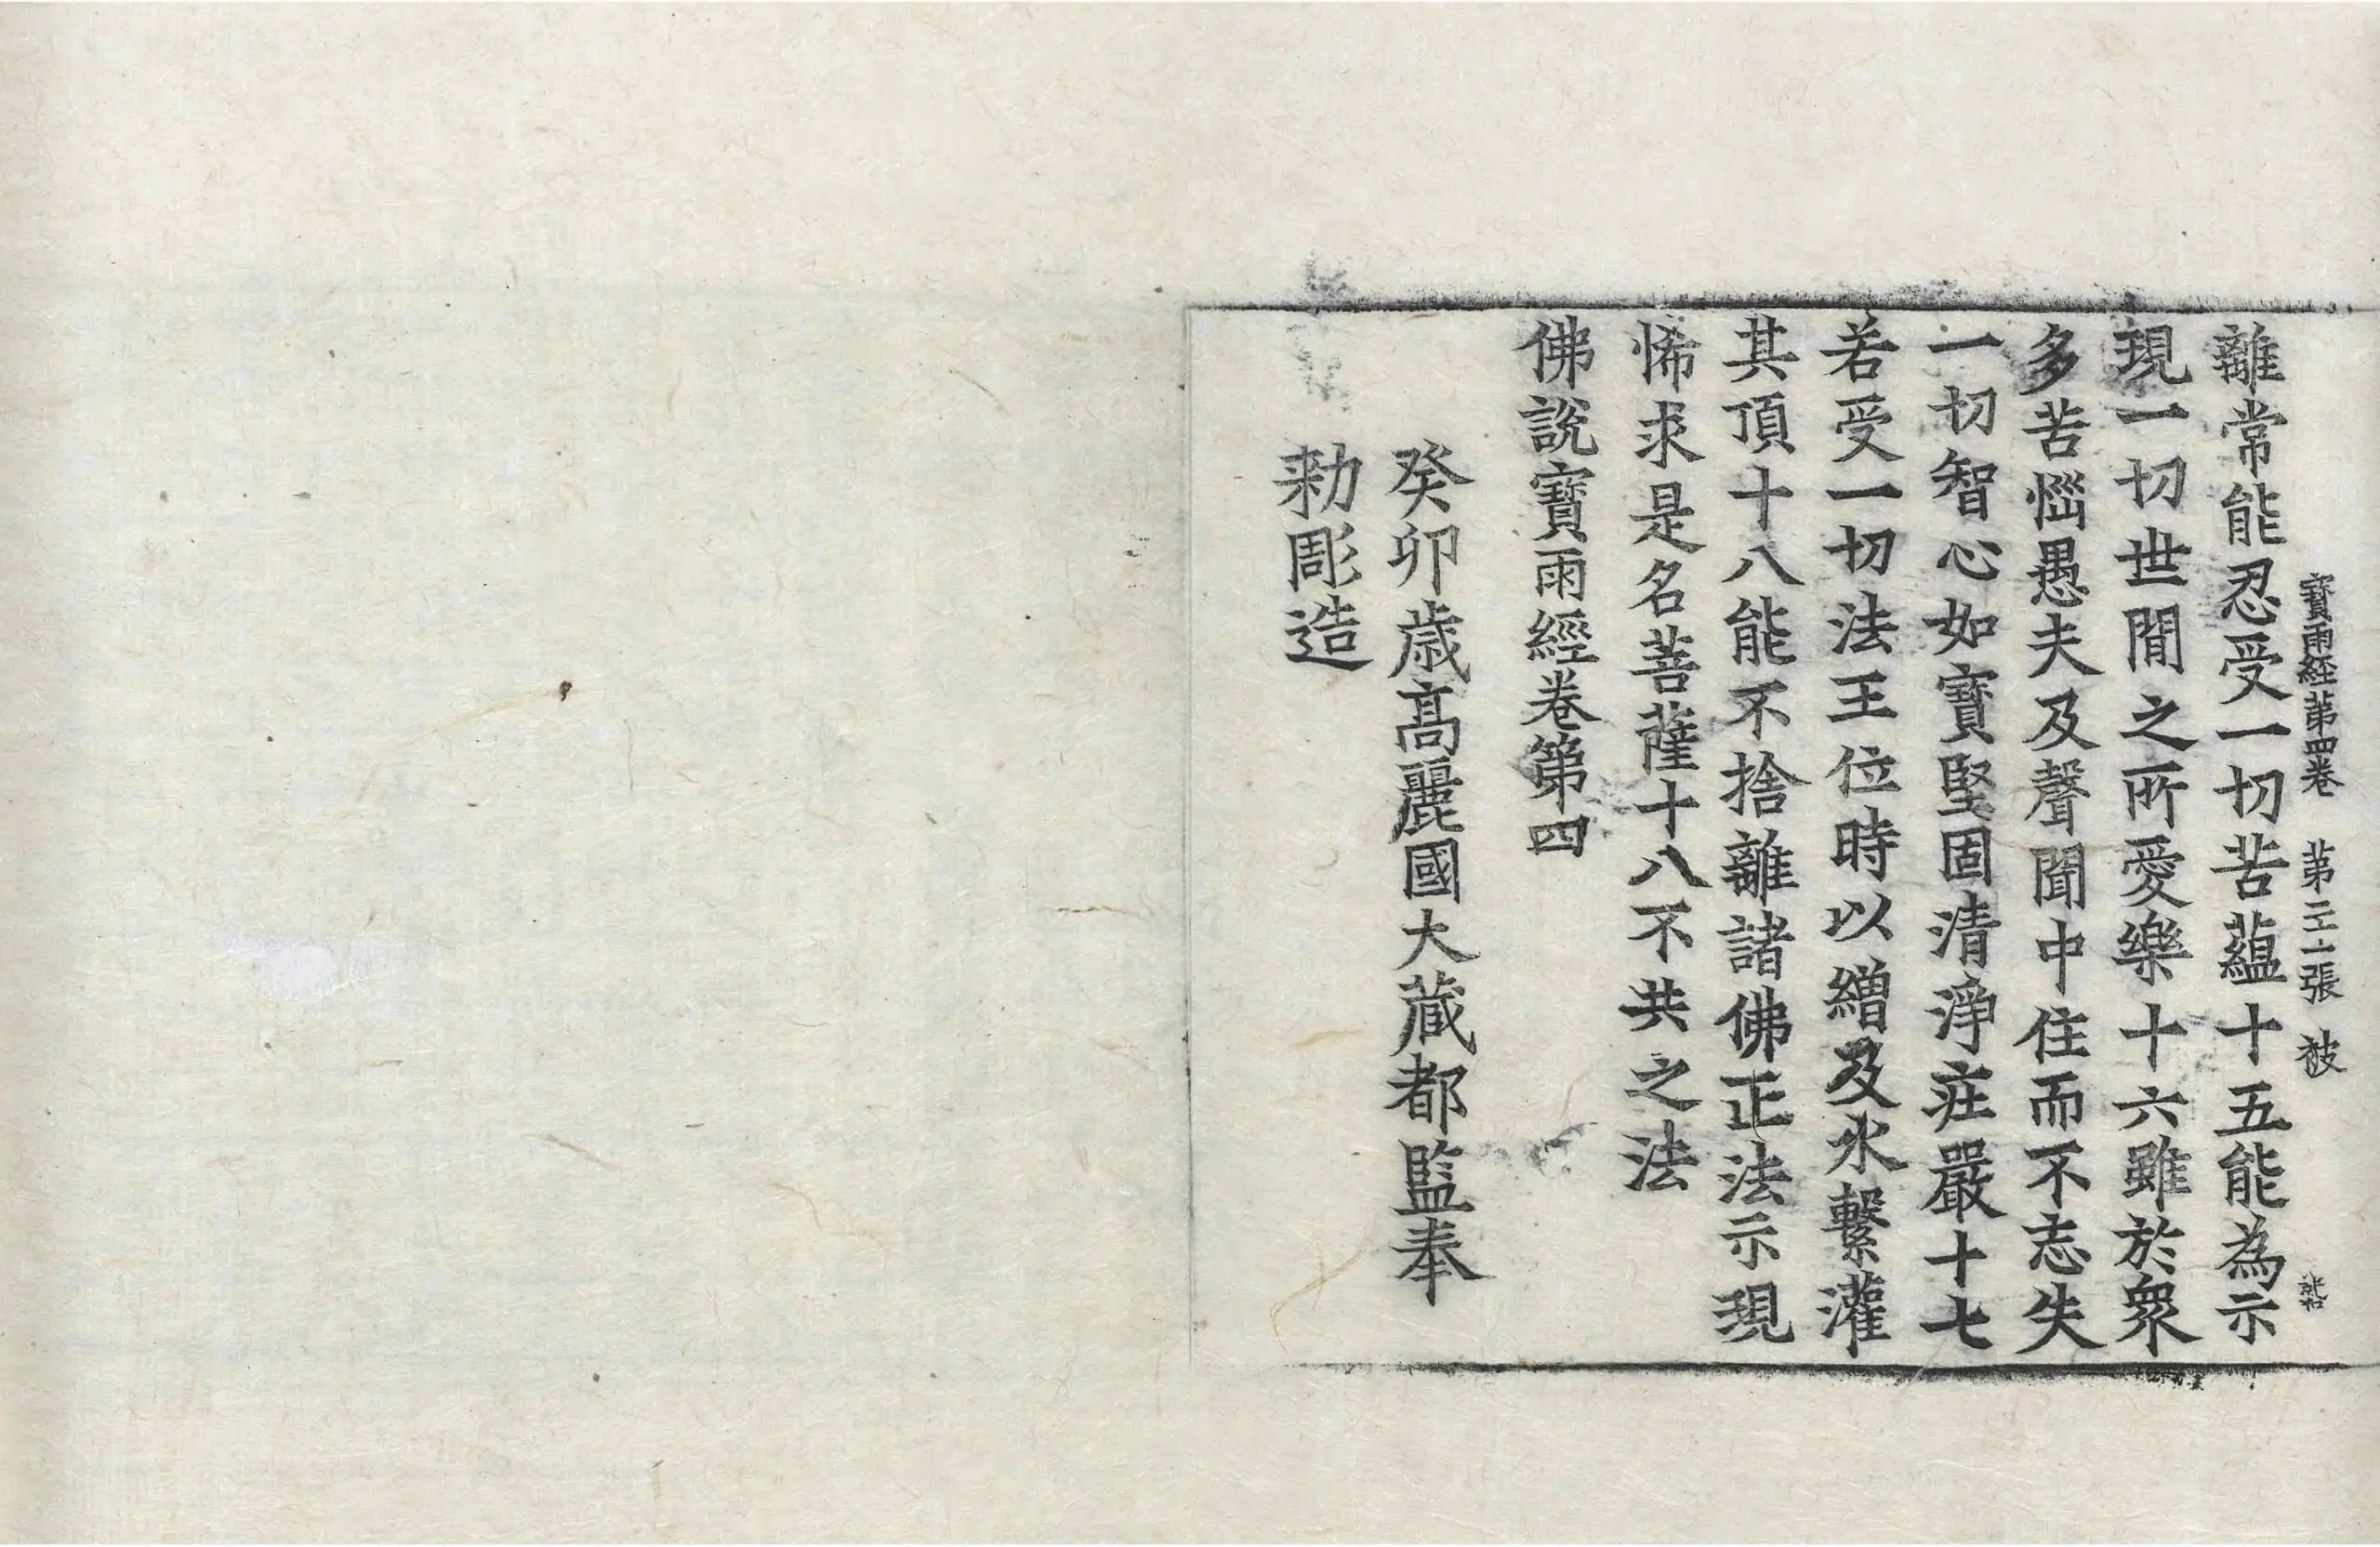 寶雨經第四卷 第二十一張 被
離常能忍受一切苦蘊十五能為示
現一切世間之所愛樂十六雖於衆
多苦惱愚夫及聲聞中住而不忘失
一切智心如寶堅固清淨莊嚴十七
若受一切法王位時以繒及水繫灌
其頂十八能不捨離諸佛正法示現
悕求是名菩薩十八不共之法
佛說寶雨經卷第四
癸卯歲高麗國大藏都監奉
勑彫造